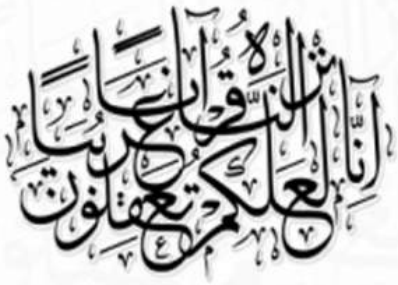 إِنَّا أَنزَلْنَاهُ قُرْآنًا عَرَبِيًّا لَعَلَّكُمْ تَعْقِلُونَ